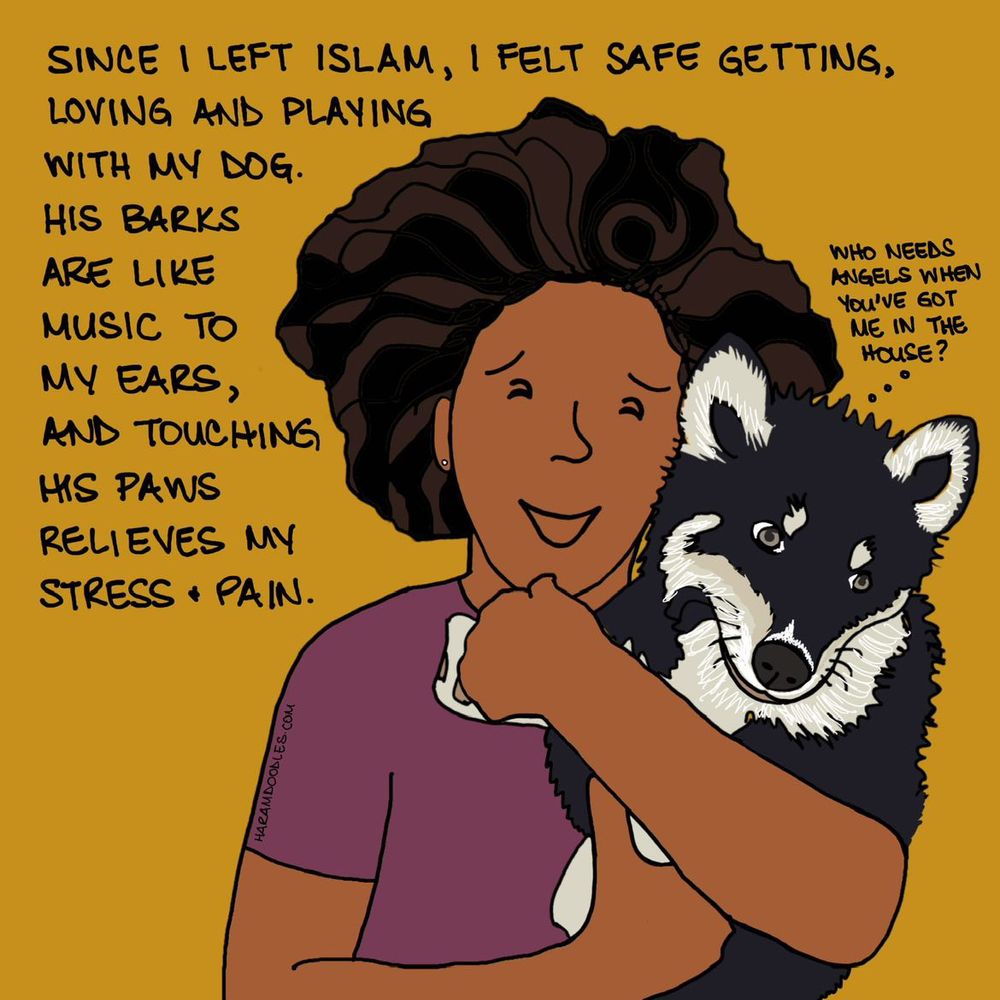 SINCE I LEFT ISLAM, I FELT SAFE GETTING,
LOVING AND PLAYING
WITH MY DOG.
HIS BARKS
ARE LIKE
MUSIC TO
MY EARS,
AND TOUCHING
HIS PAWS
RELIEVES MY
STRESS + PAIN.
WHO NEEDS
ANGELS WHEN
YOU'VE GOT
ME IN THE
HOUSE?
HARAMDOODLES.COM